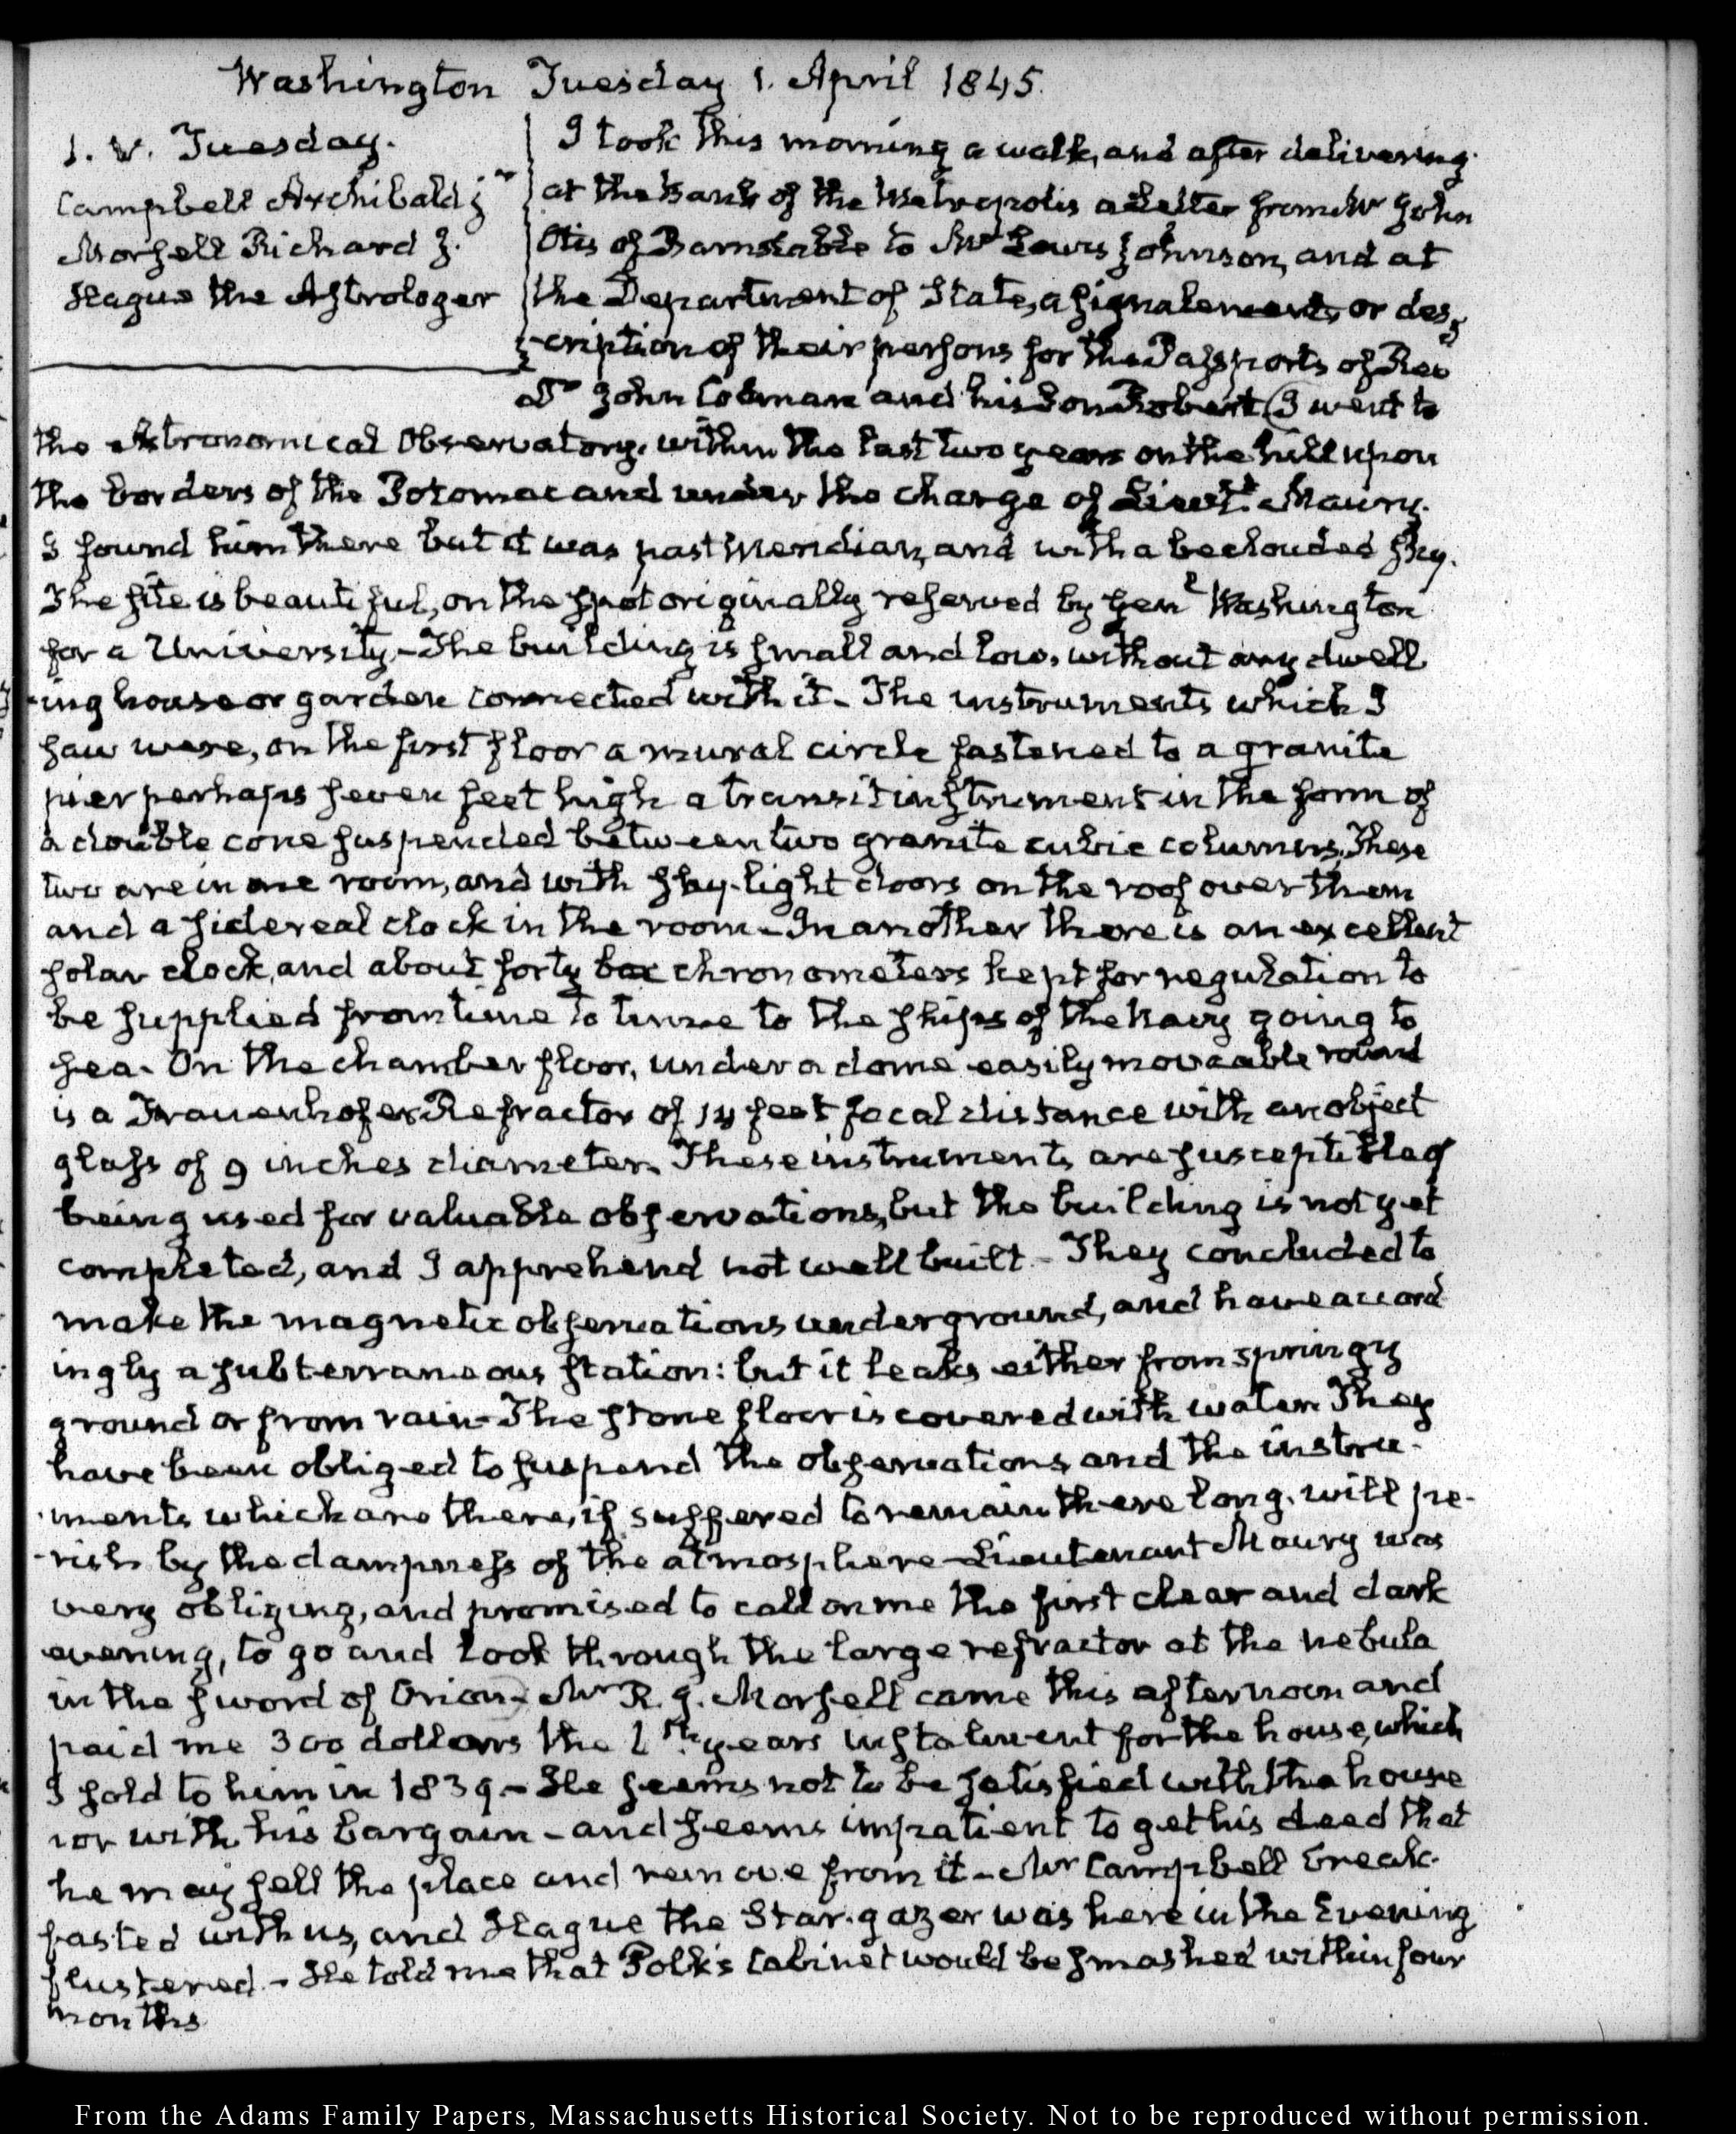 Washington Tuesday 1. April 1845.
1. V. Tuesday.
Campbell Archibald jr
Morsell Richard J.
Hague the Astrologer
I took this morning a walk, and after delivering
at the Bank of the Metropolis a letter from Mr John
Otis of Barnstable to Mr Lewis Johnson, and at
the Department of State, a signalements, or des-
-cription of their persons for the Passports of Rev
Dr John Codman and his Son Robert (I went to
the Astronomical Observatory, within the last two years on the hill upon
the borders of the Potomac and under the charge of Lieutt. Maury.
I found him there but it was past Meridian, and with a beclouded sky.
The site is beautiful, on the spot originally reserved by Genl Washington
for a University,—The building is small and low, without any dwell
-ing house or garden connected with it—The instruments which I
saw were, on the first floor a mural circle fastened to a granite
pier perhaps seven feet high a transit instrument in the form of
a double cone suspended between two granite cubic columns, These
two are in one room, and with sky-light doors on the roof over them
and a sidereal clock in the room—In another there is an excellent
solar clock, and about forty box chronometers kept for regulation to
be supplied from time to time to the ships of the Navy going to
sea. On the chamber floor, under a dome easily moveable round
is a Frauenhofer Refractor of 14 feet focal distance with an object
glass of 9 inches diameter. These instruments are susceptible of
being used for valuable observations, but the building is not yet
completed, and I apprehend not well built—They concluded to
make the magnetic observations underground, and have accord
ingly a subterraneous station: but it leaks either from springy
ground or from rain—The stone floor is covered with water. They
have been obliged to suspend the observations and the instru-
-ments which are there, if suffered to remain there long, will pe-
-rish by the dampness of the atmosphere—Lieutenant Maury was
very obliging, and promised to call on me the first clear and dark
evening, to go and look through the large refractor at the nebula
in the sword of Orion)—Mr R. J. Morsell came this afternoon and
paid me 300 dollars the years instalment for the house, which
I sold to him in 1839.—He seems not to be satisfied with the house
nor with his bargain—and seems impatient to get his deed that
he may sell the place and remove from it—Mr Campbell break-
fasted with us, and Hague the Star-gazer was here in the Evening
flustered.—He told me that Polk's Cabinet would be smashed within four
months
From the Adams Family Papers, Massachusetts Historical Society. Not to be reproduced without permission.